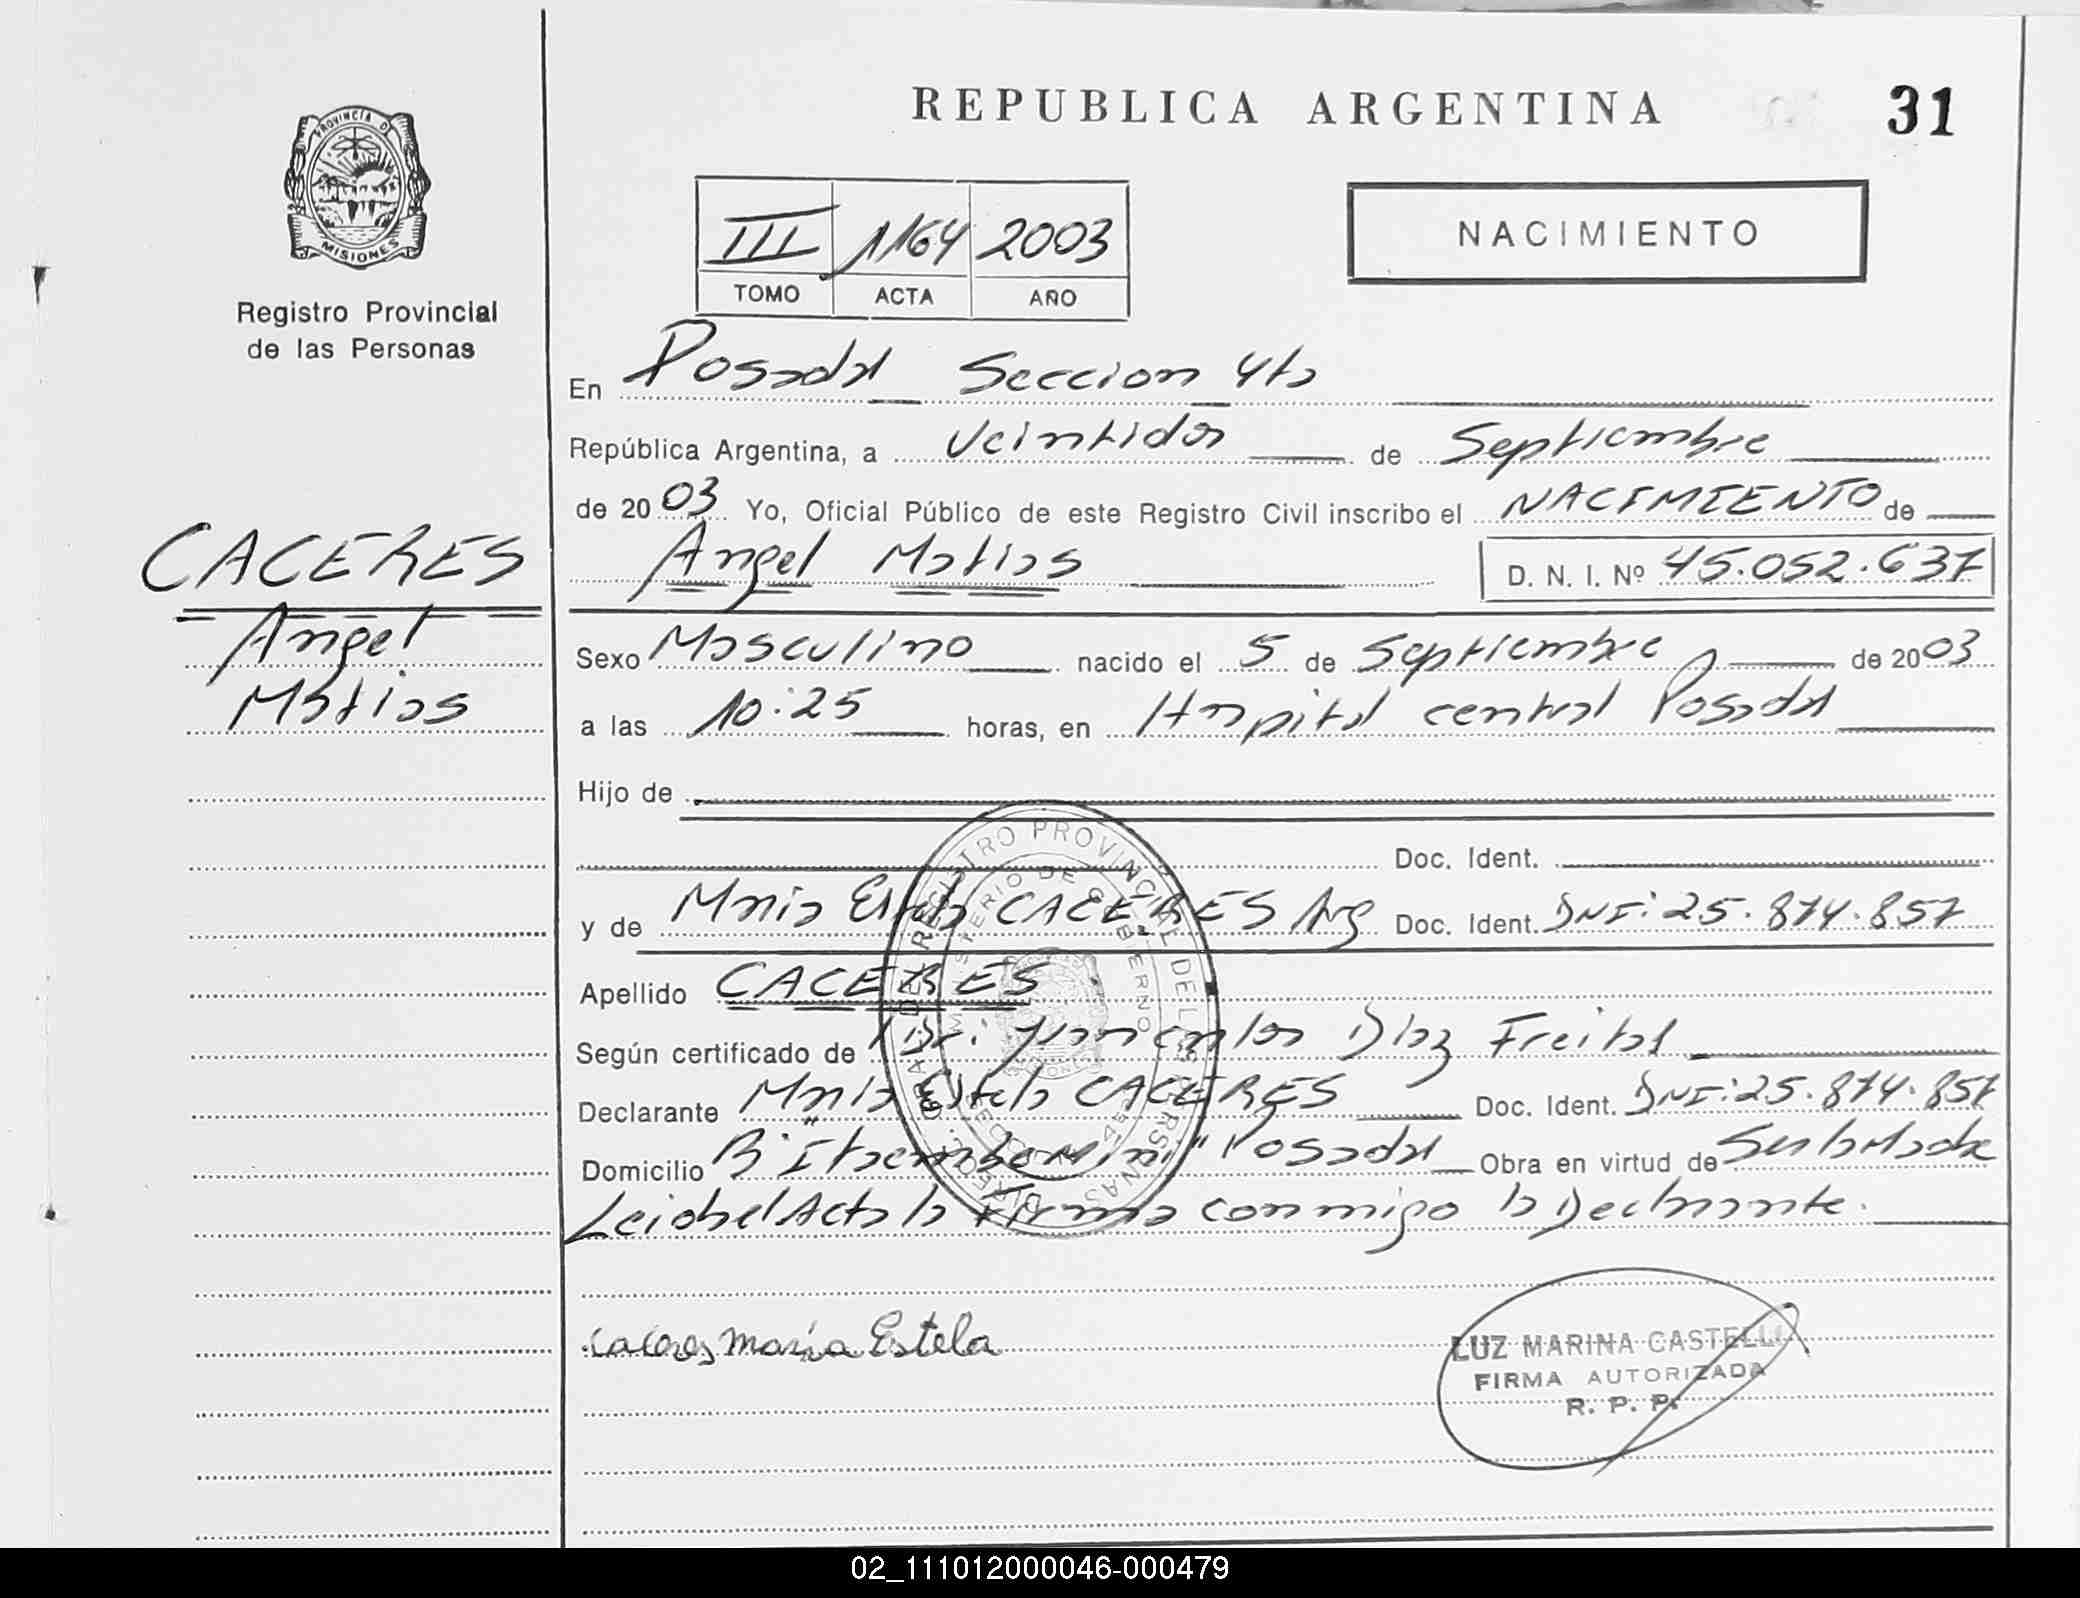 REPUBLICA ARGENTINA
31
PROVINCIA DE
MISIONES
Registro Provincial
de las Personas
III 1164 2003
TOMO ACTA AÑO
NACIMIENTO
En Posadas Seccion 4ta
República Argentina, a Veintidos de Septiembre
de 2003 Yo, Oficial Público de este Registro Civil inscribo el NACIMIENTO de
Angel Matias D. N. I. Nº 45.052.637
CACERES
Angel
Matias
Sexo Masculino nacido el 5 de Septiembre de 2003
a las 10:25 horas, en Hospital central Posadas
Hijo de
Doc. Ident.
y de Maria Estela CACERES Arg Doc. Ident. DNI: 25.874.857
Apellido CACERES
Según certificado de Dr. Juan carlos Diaz Freitas
Declarante Maria Estela CACERES Doc. Ident. DNI: 25.874.857
Domicilio B° "Itaembe Mini" Posadas Obra en virtud de Ser la Madre
Leida el Acta la Firma conmigo la Declarante.
REGISTRO PROVINCIAL DE LAS PERSONAS
MINISTERIO DE GOBIERNO
caceres maria Estela
LUZ MARINA CASTELLI
FIRMA AUTORIZADA
R. P. P.
02_111012000046-000479